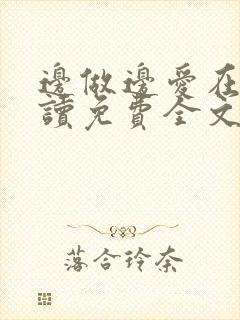 邊做邊愛在
讀免費全文
落合玲奈